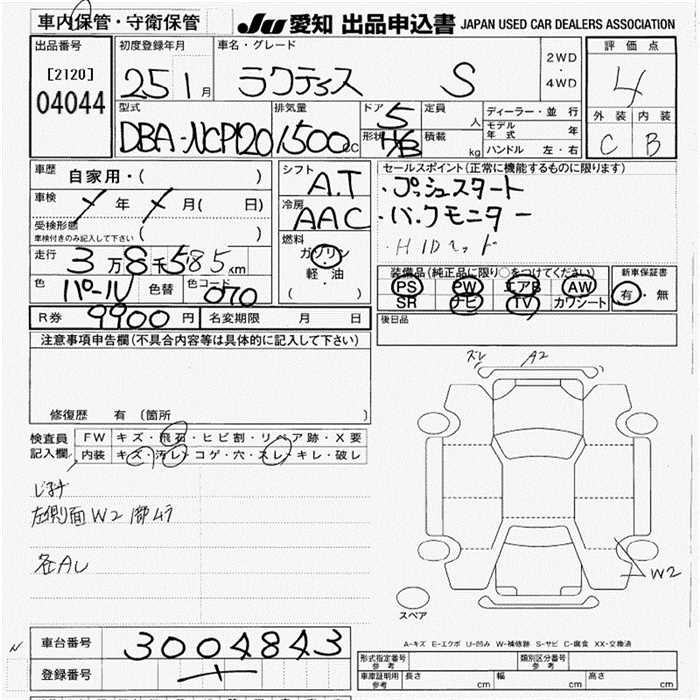 車内保管・守衛保管
JU 愛知 出品申込書 JAPAN USED CAR DEALERS ASSOCIATION
出品番号
[2120]
04044
初度登録年月
25 1月
車名・グレード
ラクティス S
2WD
・
4WD
評価点
4
外装 内装
C B
型式
DBA-NCP120
排気量
1500cc
ドア 5
形状 H/B
定員 人
積載 kg
ディーラー・並行
モデル年式 年
ハンドル 左・右
車歴 自家用・( )
車検 年 月( 日)
受検形態
車検付きのみ記入して下さい ( )
走行 3万8千585km
色 パール 色替 色コード 070
シフト A.T
冷房 AAC
燃料
ガソリン
軽・油
( )
セールスポイント(正常に機能するものに限ります)
・プッシュスタート
・バックモニター
・HID
装備品(純正品に限り○をつけてください)
PS PW エアB AW
SR ナビ TV カワシート
新車保証書
有・無
後日品
R券 9900円 名変期限 月 日
注意事項申告欄(不具合内容等は具体的に記入して下さい)
修復歴 有(箇所 )
検査員記入欄
FW キズ・飛石・ヒビ割・リペア跡・X要
内装 キズ・汚レ・コゲ・穴・スレ・キレ・破レ
左側面W2
各AU
ズレ A2
W2
スペア
A-キズ E-エクボ U-凹み W-補修跡 S-サビ C-腐食 XX-交換済
車台番号 3004843
登録番号
形式指定番号 参考
類別区分番号 参考
車庫証明用 参考 長さ cm 幅 cm 高さ cm